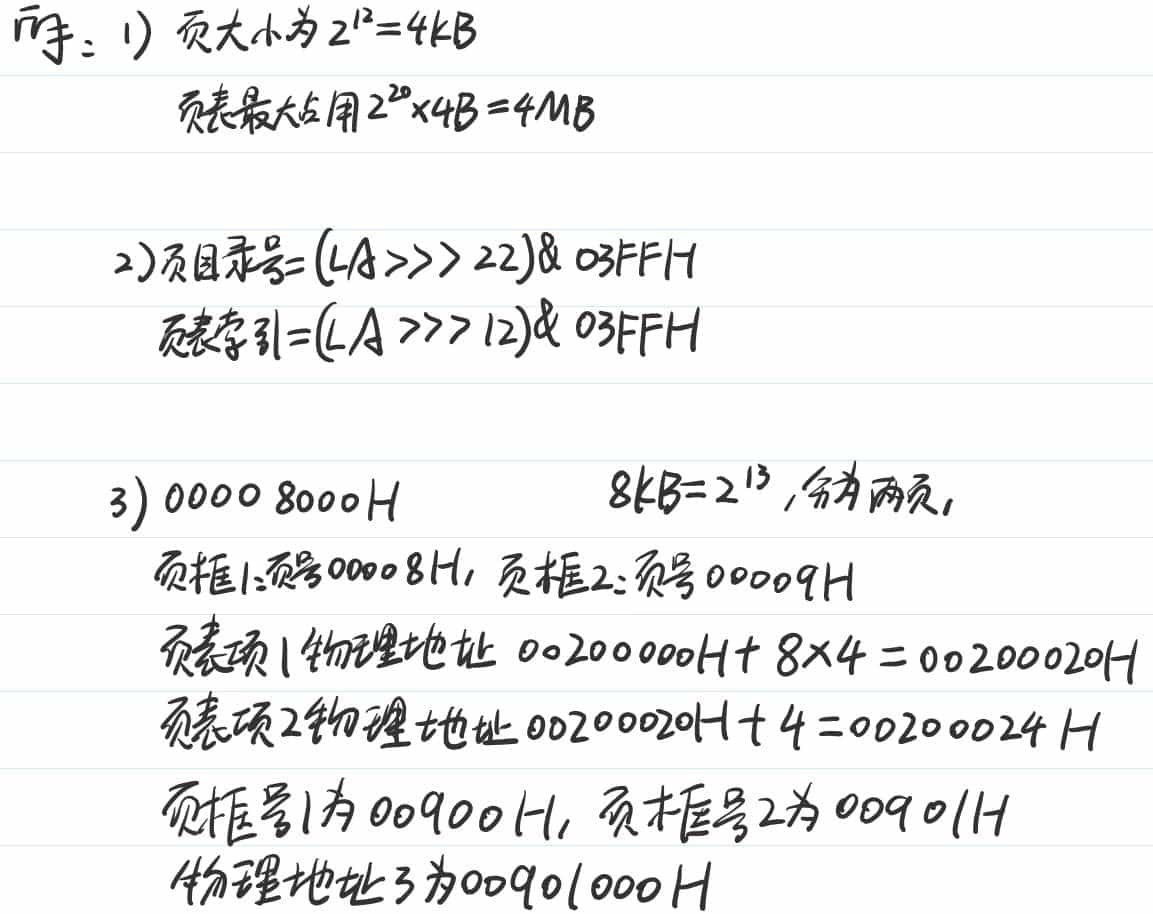 解：1) 页大小为2¹²=4kB
页表最大占用2²⁰×4B=4MB
2)页目录号=(LA>>>22)& 03FFH
页表索引=(LA>>>12)& 03FFH
3) 0000 8000H 8kB=2¹³,分为两页,
页框1:页号00008H, 页框2:页号00009H
页表项1物理地址 00200000H+8×4=00200020H
页表项2物理地址00200020H+4=00200024H
页框号1为00900H, 页框号2为00901H
物理地址3为00901000H